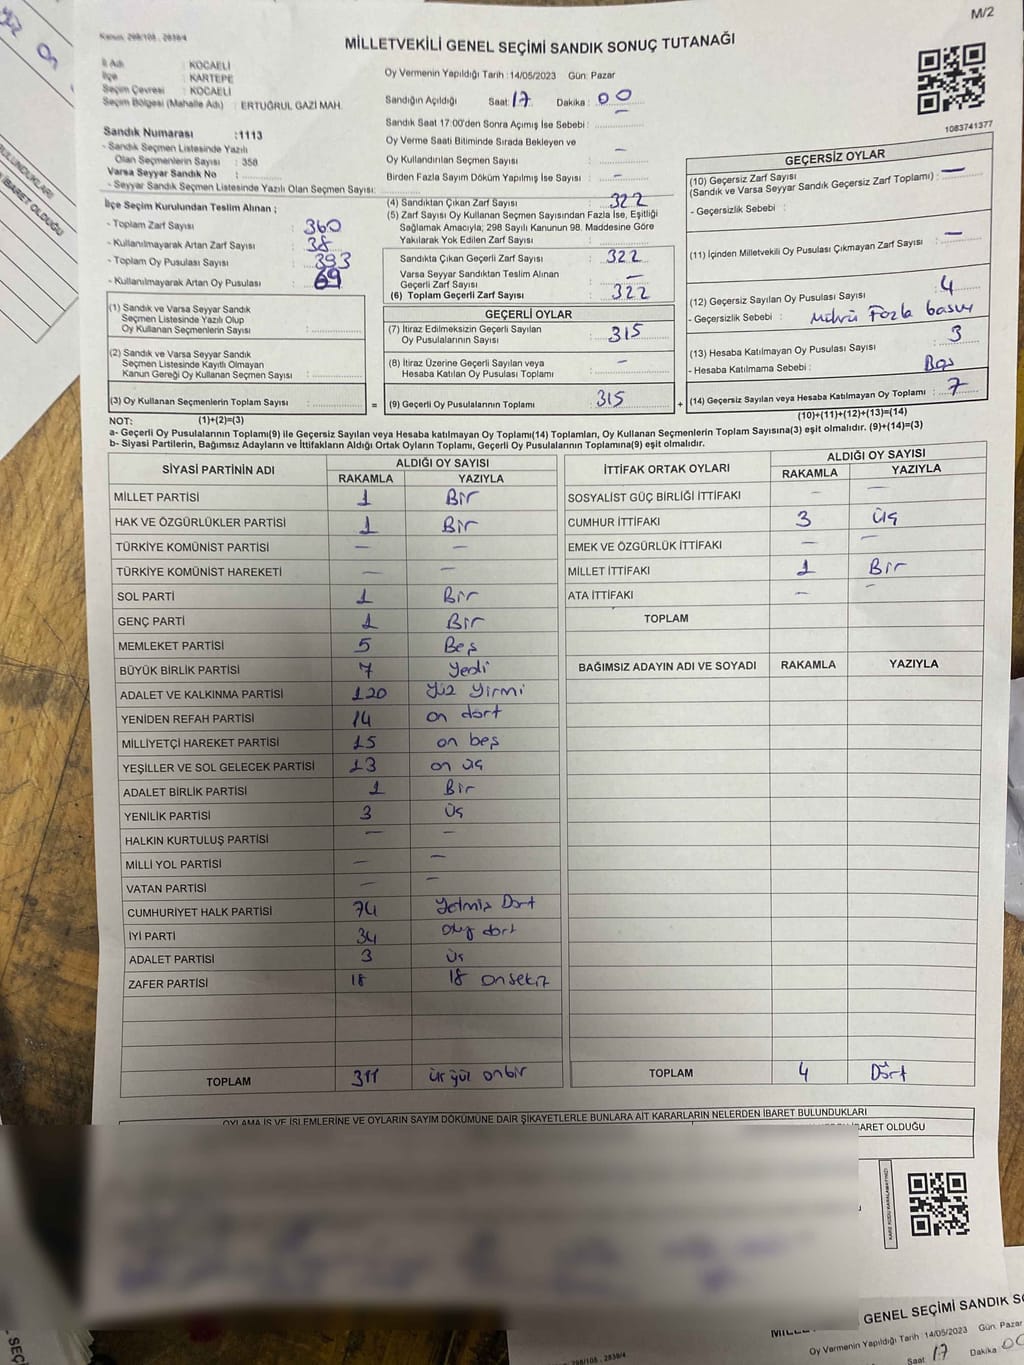 M/2
Kanun: 298/105 , 2839/4
MİLLETVEKİLİ GENEL SEÇİMİ SANDIK SONUÇ TUTANAĞI
İl Adı : KOCAELİ
İlçe : KARTEPE
Seçim Çevresi : KOCAELİ
Seçim Bölgesi (Mahalle Adı) : ERTUĞRUL GAZİ MAH.
Sandık Numarası :1113
- Sandık Seçmen Listesinde Yazılı
Olan Seçmenlerin Sayısı : 358
Varsa Seyyar Sandık No :
- Seyyar Sandık Seçmen Listesinde Yazılı Olan Seçmen Sayısı:
İlçe Seçim Kurulundan Teslim Alınan ;
- Toplam Zarf Sayısı : 360
- Kullanılmayarak Artan Zarf Sayısı : 38
- Toplam Oy Pusulası Sayısı : 393
- Kullanılmayarak Artan Oy Pusulası : 69
(1) Sandık ve Varsa Seyyar Sandık
Seçmen Listesinde Yazılı Olup
Oy Kullanan Seçmenlerin Sayısı :
(2) Sandık ve Varsa Seyyar Sandık
Seçmen Listesinde Kayıtlı Olmayan
Kanun Gereği Oy Kullanan Seçmen Sayısı :
(3) Oy Kullanan Seçmenlerin Toplam Sayısı : =
Oy Vermenin Yapıldığı Tarih :14/05/2023 Gün: Pazar
Sandığın Açıldığı Saat: 17 Dakika : 00
Sandık Saat 17:00'den Sonra Açımış İse Sebebi : –
Oy Verme Saati Bitiminde Sırada Bekleyen ve
Oy Kullandırılan Seçmen Sayısı : –
Birden Fazla Sayım Döküm Yapılmış İse Sayısı : –
(4) Sandıktan Çıkan Zarf Sayısı : 322
(5) Zarf Sayısı Oy Kullanan Seçmen Sayısından Fazla İse, Eşitliği
Sağlamak Amacıyla; 298 Sayılı Kanunun 98. Maddesine Göre
Yakılarak Yok Edilen Zarf Sayısı :
Sandıkta Çıkan Geçerli Zarf Sayısı : 322
Varsa Seyyar Sandıktan Teslim Alınan
Geçerli Zarf Sayısı : –
(6) Toplam Geçerli Zarf Sayısı : 322
GEÇERLİ OYLAR
(7) İtiraz Edilmeksizin Geçerli Sayılan
Oy Pusulalarının Sayısı : 315
(8) İtiraz Üzerine Geçerli Sayılan veya
Hesaba Katılan Oy Pusulası Toplamı : –
(9) Geçerli Oy Pusulalarının Toplamı : 315 +
1083741377
GEÇERSİZ OYLAR
(10) Geçersiz Zarf Sayısı
(Sandık ve Varsa Seyyar Sandık Geçersiz Zarf Toplamı) : –
- Geçersizlik Sebebi :
(11) İçinden Milletvekili Oy Pusulası Çıkmayan Zarf Sayısı : –
(12) Geçersiz Sayılan Oy Pusulası Sayısı : 4
- Geçersizlik Sebebi : Mührü Fazla basım
(13) Hesaba Katılmayan Oy Pusulası Sayısı : 3
- Hesaba Katılmama Sebebi : Boş
(14) Geçersiz Sayılan veya Hesaba Katılmayan Oy Toplamı : 7
NOT: (1)+(2)=(3) (10)+(11)+(12)+(13)=(14)
a- Geçerli Oy Pusulalarının Toplamı(9) ile Geçersiz Sayılan veya Hesaba katılmayan Oy Toplamı(14) Toplamları, Oy Kullanan Seçmenlerin Toplam Sayısına(3) eşit olmalıdır. (9)+(14)=(3)
b- Siyasi Partilerin, Bağımsız Adayların ve İttifakların Aldığı Ortak Oyların Toplamı, Geçerli Oy Pusulalarının Toplamına(9) eşit olmalıdır.
SİYASİ PARTİNİN ADI ALDIĞI OY SAYISI
RAKAMLA YAZIYLA
MİLLET PARTİSİ 1 Bir
HAK VE ÖZGÜRLÜKLER PARTİSİ 1 Bir
TÜRKİYE KOMÜNİST PARTİSİ – –
TÜRKİYE KOMÜNİST HAREKETİ – –
SOL PARTİ 1 Bir
GENÇ PARTİ 1 Bir
MEMLEKET PARTİSİ 5 Beş
BÜYÜK BİRLİK PARTİSİ 7 Yedi
ADALET VE KALKINMA PARTİSİ 120 Yüz Yirmi
YENİDEN REFAH PARTİSİ 14 on dört
MİLLİYETÇİ HAREKET PARTİSİ 15 on beş
YEŞİLLER VE SOL GELECEK PARTİSİ 13 on üç
ADALET BİRLİK PARTİSİ 1 Bir
YENİLİK PARTİSİ 3 Üç
HALKIN KURTULUŞ PARTİSİ – –
MİLLİ YOL PARTİSİ – –
VATAN PARTİSİ – –
CUMHURİYET HALK PARTİSİ 74 Yetmiş Dört
İYİ PARTİ 34 otuz dört
ADALET PARTİSİ 3 Üç
ZAFER PARTİSİ 18 18 onsekiz
TOPLAM 311 üç yüz onbir
İTTİFAK ORTAK OYLARI ALDIĞI OY SAYISI
RAKAMLA YAZIYLA
SOSYALİST GÜÇ BİRLİĞİ İTTİFAKI – –
CUMHUR İTTİFAKI 3 üç
EMEK VE ÖZGÜRLÜK İTTİFAKI – –
MİLLET İTTİFAKI 1 Bir
ATA İTTİFAKI – –
TOPLAM
BAĞIMSIZ ADAYIN ADI VE SOYADI RAKAMLA YAZIYLA
TOPLAM 4 Dört
OYLAMA İŞ VE İŞLEMLERİNE VE OYLARIN SAYIM DÖKÜMÜNE DAİR ŞİKAYETLERLE BUNLARA AİT KARARLARIN NELERDEN İBARET BULUNDUKLARI
İBARET OLDUĞU
GENEL SEÇİMİ SANDIK
Oy Vermenin Yapıldığı Tarih :14/05/2023 Gün: Pazar
Saat: 17 Dakika
298/105 , 2839/4
BULUNDUKLARI
İBARET OLDUĞU